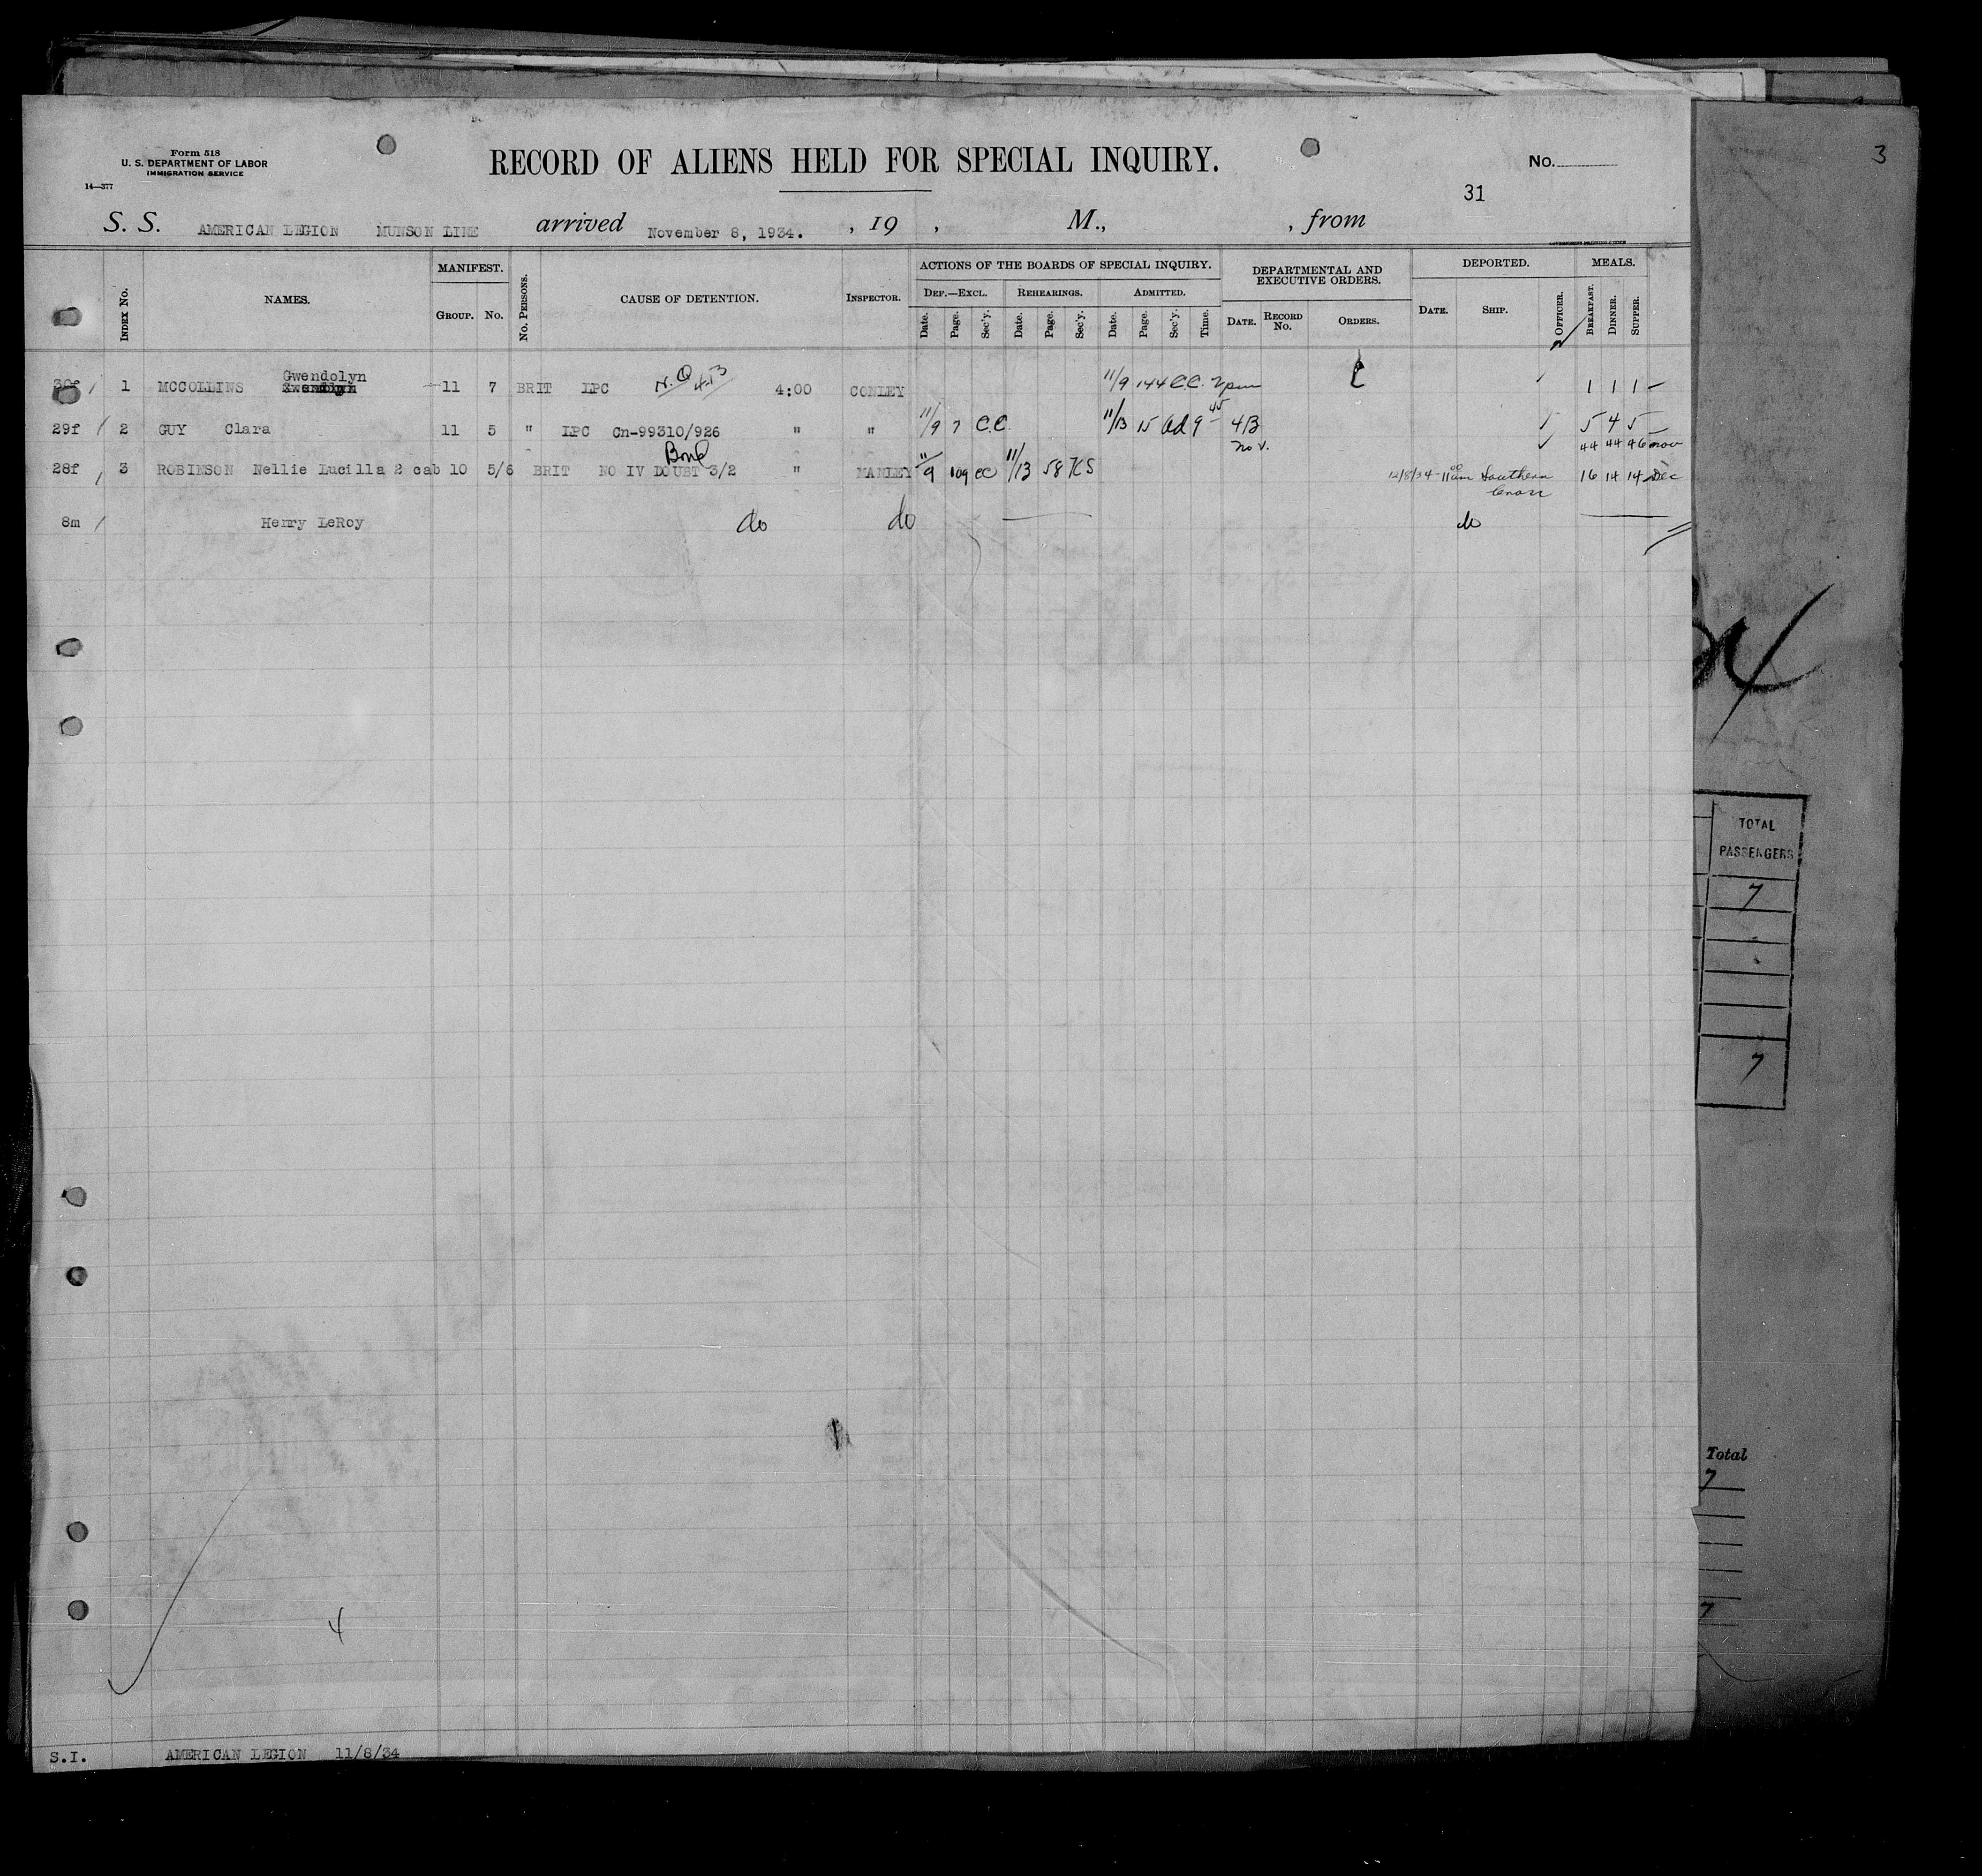 Form 518
U. S. DEPARTMENT OF LABOR
IMMIGRATION SERVICE
14—377
RECORD OF ALIENS HELD FOR SPECIAL INQUIRY.
No.
31
3
S. S. AMERICAN LEGION MUNSON LINE arrived November 8, 1934. , 19 , M., , from
INDEX No. NAMES. MANIFEST. GROUP. No. No. PERSONS. CAUSE OF DETENTION. INSPECTOR.
ACTIONS OF THE BOARDS OF SPECIAL INQUIRY.
DEF.—EXCL. Date. Page. Sec'y. REHEARINGS. Date. Page. Sec'y. ADMITTED. Date. Page. Sec'y. Time.
DEPARTMENTAL AND EXECUTIVE ORDERS. DATE. RECORD No. ORDERS.
DEPORTED. DATE. SHIP. OFFICER.
MEALS. BREAKFAST. DINNER. SUPPER.
Gwendolyn
30f 1 MCCOLLINS 11 7 BRIT LPC 4:00 CONLEY 11/9 144 C.C. 2pm 1 1 1 —
29f 2 GUY Clara 11 5 " LPC Cn-99310/926 " " 11/9 7 C.C. 11/13 15 ad 9 45 4B 5 4 5 —
Nov. 44 44 46 nov
Bond
28f 3 ROBINSON Nellie Lucilla 2 cab 10 5/6 BRIT NO IV DOUBT 3/2 " MANLEY 11/9 109 CC 11/13 58 KS 12/8/34 - 11 00 am Southern Cross 16 14 14 Dec
8m Henry LeRoy do do do
TOTAL
PASSENGERS
7
7
Total
7
7
4
S.I. AMERICAN LEGION 11/8/34